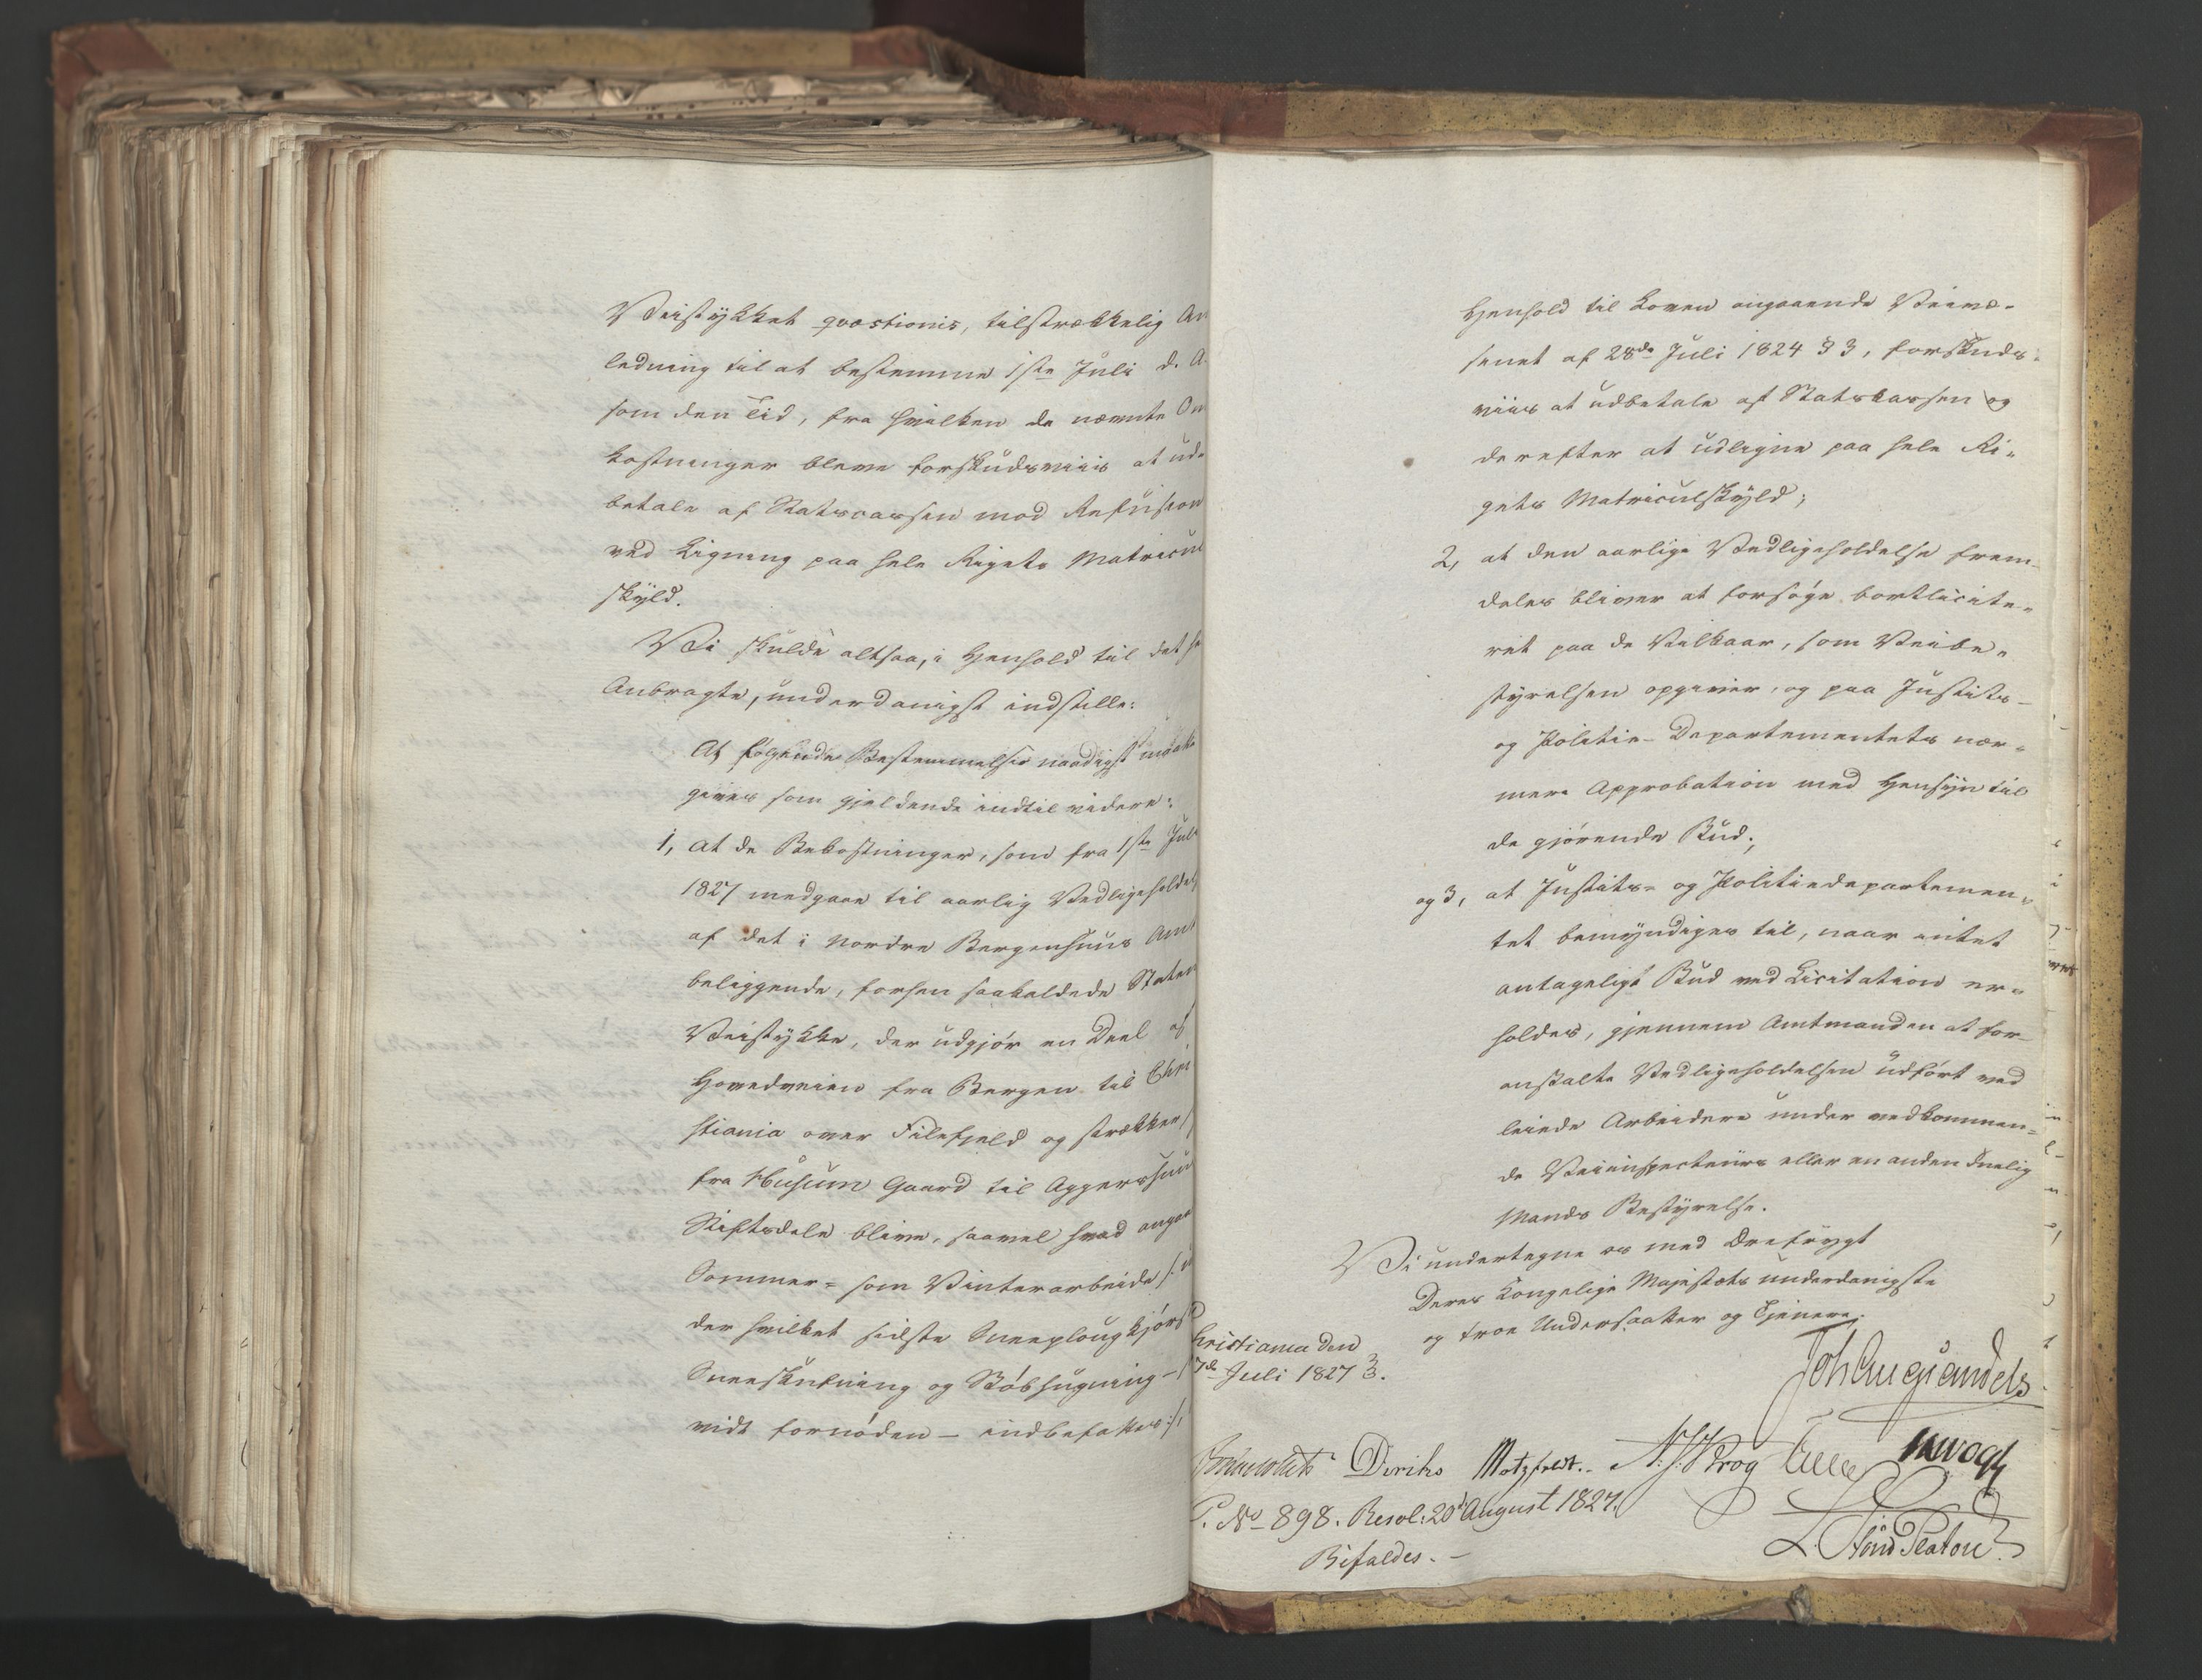 Veistykket qvæstionis, tilstrækkelig An
ledning til at bestemme 1ste Juli d. A.
som den Tid, fra hvilken de nævnte Om
kostninger bleve forskudsviis at ud-
betale af Statscassen mod Refusion
ved Ligning paa hele Rigets Matricul
skyld.
Vi skulde altsaa, i Henhold til det
Anbragte, underdanigst indstille:
At følgende Bestemmelser naadigst maatte
gives som gjeldende indtil videre:
1, at de Bekostninger, som fra 1ste Juli
1827 medgaae til aarlig Vedligeholdelse
af det i Nordre Bergenhuus Amt
beliggende, forhen saakaldede Staten
Veistykke, der udgjør en Deel af
Hovedveien fra Bergen til Chri
stiania over Filefjeld og strækker
fra Husum Gaard til Aggershuus
Stiftsdele blive, saavel hvad angaar
Sommer- som Vinterarbeide /: un
der hvilket sidste Sneeplougkjørsel
Sneeskufning og Støbhugning –
vidt fornøden – indbefattes :/,
Henhold til Loven angaaende Veivæ-
senet af 28de Juli 1824 § 3, forskuds-
viis at udbetale af Statskassen og
derefter at udligne paa hele Ri-
gets Matriculskyld;
2, at den aarlige Vedligeholdelse frem-
deles bliver at forsøge bortlicite-
ret paa de Vilkaar, som Veibe-
styrelsen opgiver, og paa Justits-
og Politie-Departementets nær-
mere Approbation med Hensyn til
de gjørende Bud;
og 3, at Justits- og Politiedepartemen-
tet bemyndiges til, naar intet
antageligt Bud ved Licitation er-
holdes, gjennem Amtmanden at for-
anstalte Vedligeholdelsen udført ved
leiede Arbeidere under vedkommen-
de Veiinspecteurs eller en anden duelig
Mands Bestyrelse.
Vi undertegne os med Ærefrygt
Deres Kongelige Majestæts underdanigste
og troe Undersaatter og Tjenere.
Christiania den
7de Juli 1827
Joh Aug Sandels
Diriks Motzfeldt. N. J. Krog JHVogt
P. No 898. Resol: 20 August 1827.
Bifaldes. –
L. Stoud Platou